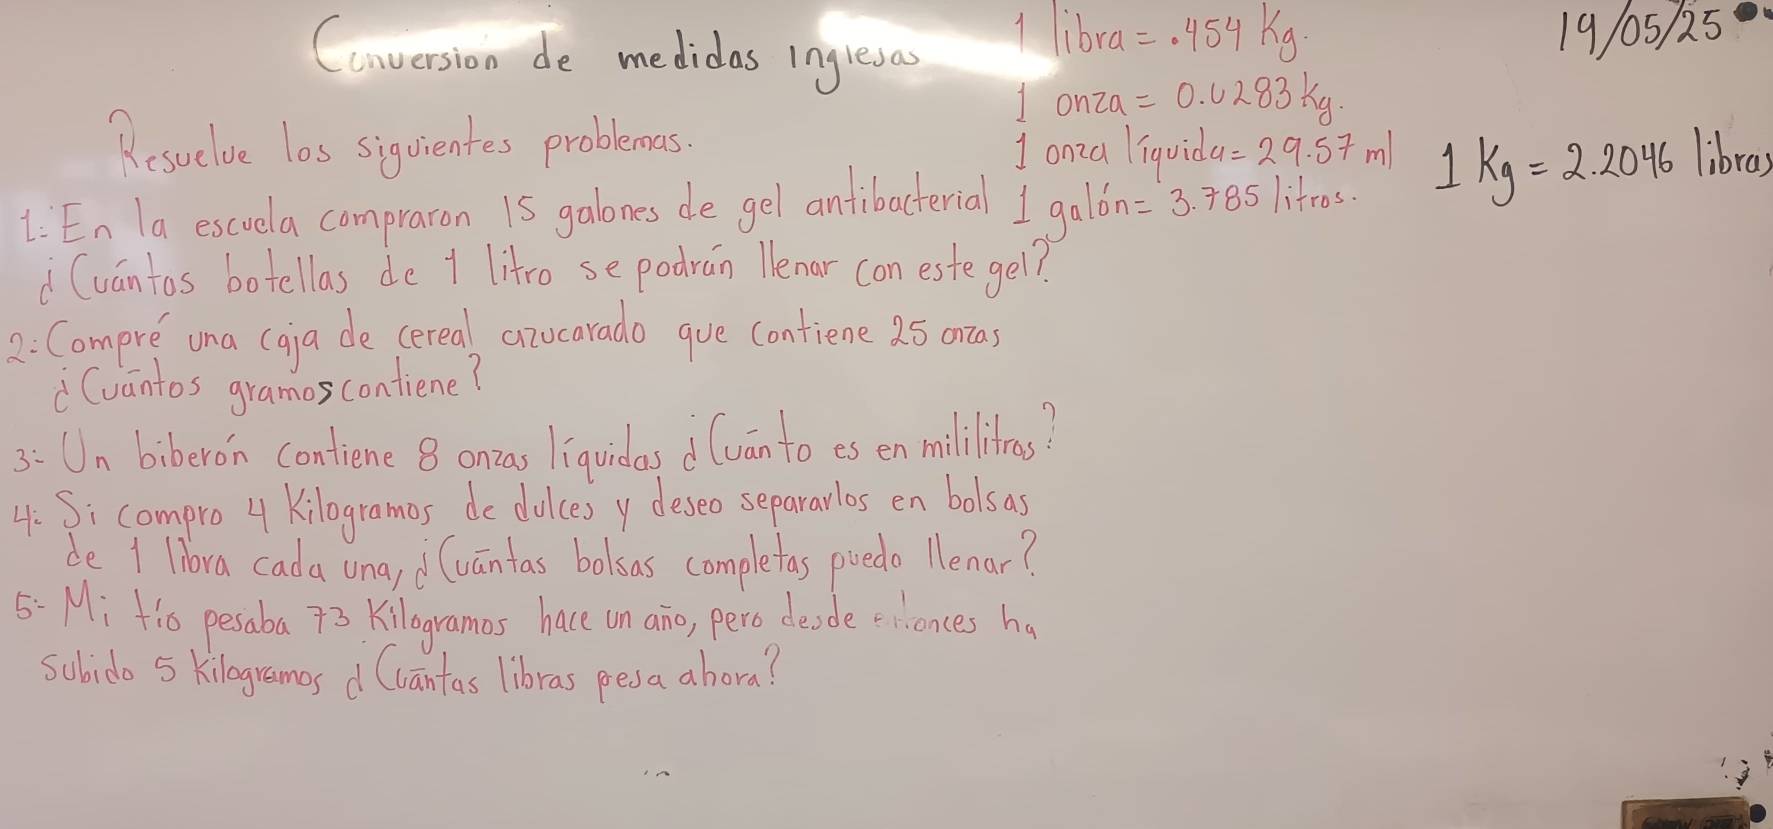 Conversion de medidas inglesas
19/05/25
1 libra = .454 Kg.
1 onza = 0.0283 Kg.
1 onza líquida = 29.57 ml
1 galón = 3.785 litros.
1 Kg = 2.2046 libras
Resuelve los siguientes problemas.
1: En la escuela compraron 15 galones de gel antibacterial
¿Cuántas botellas de 1 litro se podrán llenar con este gel?
2: Compré una caja de cereal azucarado que contiene 25 onzas
¿Cuántos gramos contiene?
3: Un biberón contiene 8 onzas líquidas ¿Cuánto es en mililitros?
4: Si compro 4 Kilogramos de dulces y deseo separarlos en bolsas
de 1 libra cada una, ¿Cuántas bolsas completas puedo llenar?
5: Mi tío pesaba 73 Kilogramos hace un año, pero desde entonces ha
subido 5 kilogramos ¿Cuántas libras pesa ahora?